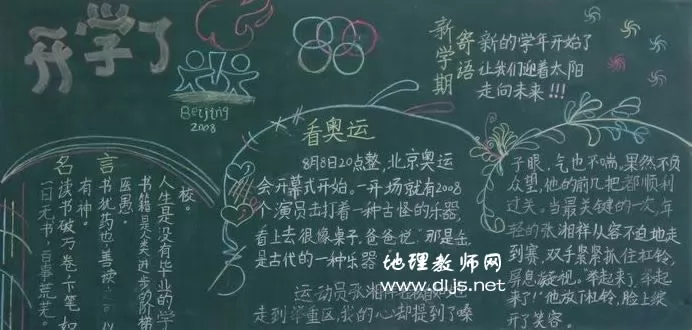 开学了
Beijing
2008
新学期
寄语
新的学年开始了
让我们迎着太阳
走向未来!!!
名言
一日无书,百事荒芜。
读书破万卷,下笔如
有神。
书犹药也,善读
医愚。
书籍是人类进步的阶梯
人生是没有毕业的学
校。
看奥运
8月8日20点整,北京奥运
会开幕式开始。一开场就有2008
个演员击打着一种古怪的乐器,
看上去很像桌子,爸爸说"那是缶,
是古代的一种乐器
运动员张湘祥 地
走到举重区,我的心却提到了嗓
子眼,气也不喘,果然不负
众望,他的前几把都顺利
过关。当最关键的一次,年
轻的张湘祥从容不迫地走
到赛,双手紧紧抓住杠铃,
屏息凝视。"举起来了,举起
来了!"他放下杠铃,脸上绽
开了笑容。
地理教师网
www.dljs.net